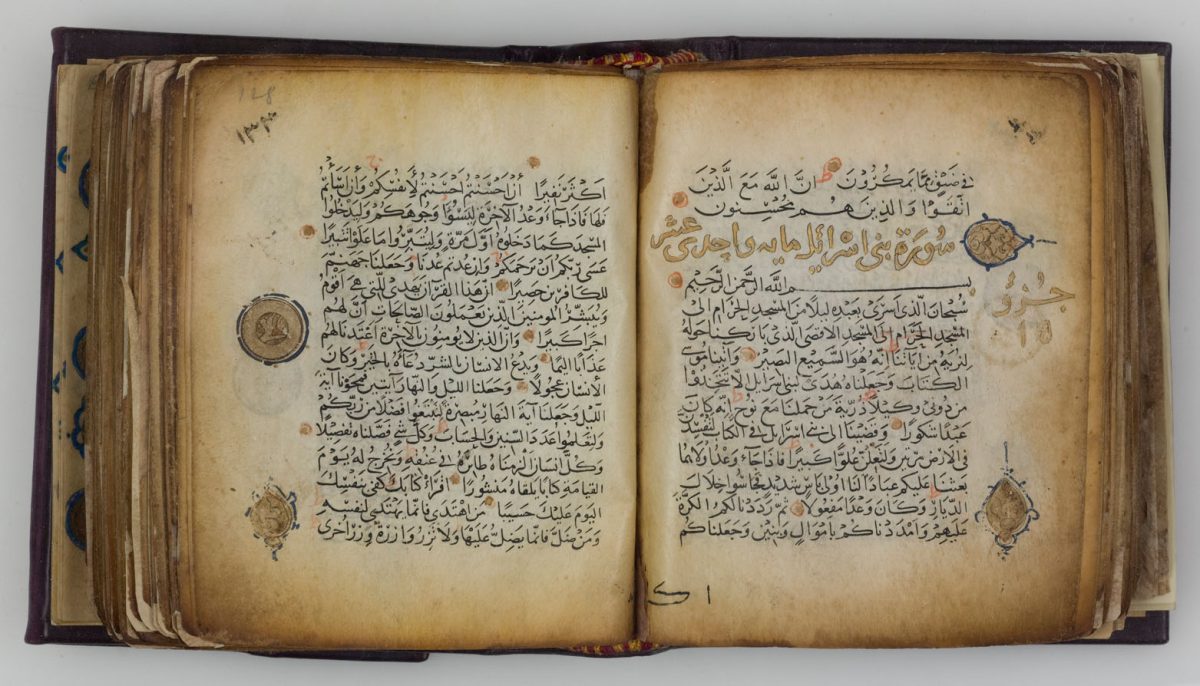 في ضيق مما يمكرون ان الله مع الذين
اتقوا والذين هم محسنون
سورة بنى اسرائيل مايه واحدى عشر
بسم الله الرحمن الرحيم
جزؤ
١٥
سبحان الذى اسرى بعبده ليلا من المسجد الحرام الى
المسجد الحرام الى المسجد الاقصى الذى باركنا حوله
لنريه من اياتنا انه هو السميع البصير واتينا موسى
الكتاب وجعلناه هدى لبنى اسرايل الا تتخذوا
من دونى وكيلا ذرية من حملنا مع نوح انه كان
عبدا شكورا وقضينا الى بنى اسرايل فى الكتاب لتفسدن
فى الارض مرتين ولتعلن علوا كبيرا فاذا جاء وعد اولاهما
بعثنا عليكم عبادا لنا اولى باس شديد فجاسوا خلال
الديار وكان وعدا مفعولا ثم رددنا لكم الكرة
عليهم وامددناكم باموال وبنين وجعلناكم
128
اكثر نفيرا ان احسنتم احسنتم لانفسكم وان اسأتم
فلها فاذا جاء وعد الاخرة ليسؤا وجوهكم وليدخلوا
المسجد كما دخلوه اول مرة وليتبروا ما علوا تتبيرا
عسى ربكم ان يرحمكم وان عدتم عدنا وجعلنا جهنم
للكافرين حصيرا ان هذا القران يهدى للتى هى اقوم
ويبشر المومنين الذين يعملون الصالحات ان لهم
اجرا كبيرا وان الذين لا يومنون بالاخرة اعتدنا لهم
عذابا اليما ويدع الانسان بالشر دعاه بالخير وكان
الانسان عجولا وجعلنا الليل والنهار ايتين فمحونا اية
الليل وجعلنا آية النهار مبصرة لتبتغوا فضلا من ربكم
ولتعلموا عدد السنين والحساب وكل شى فصلناه تفصيلا
وكل انسان الزمناه طائره فى عنقه ونخرج له يوم
القيامة كتابا يلقاه منشورا اقرأ كتابك كفى بنفسك
اليوم عليك حسيبا من اهتدى فانما يهتدى لنفسه
ومن ضل فانما يضل عليها ولا تزر وازرة وزر اخرى